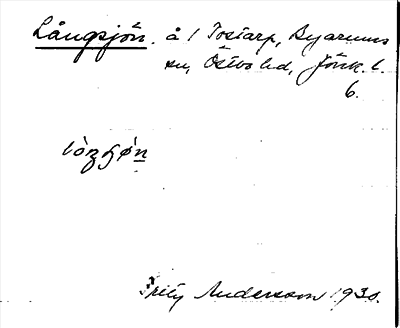 Långsjön. å 1 Tostarp, Byarums
sn, Östbo hd, Jönk. l.
6.
Fritz Andersson 1930.